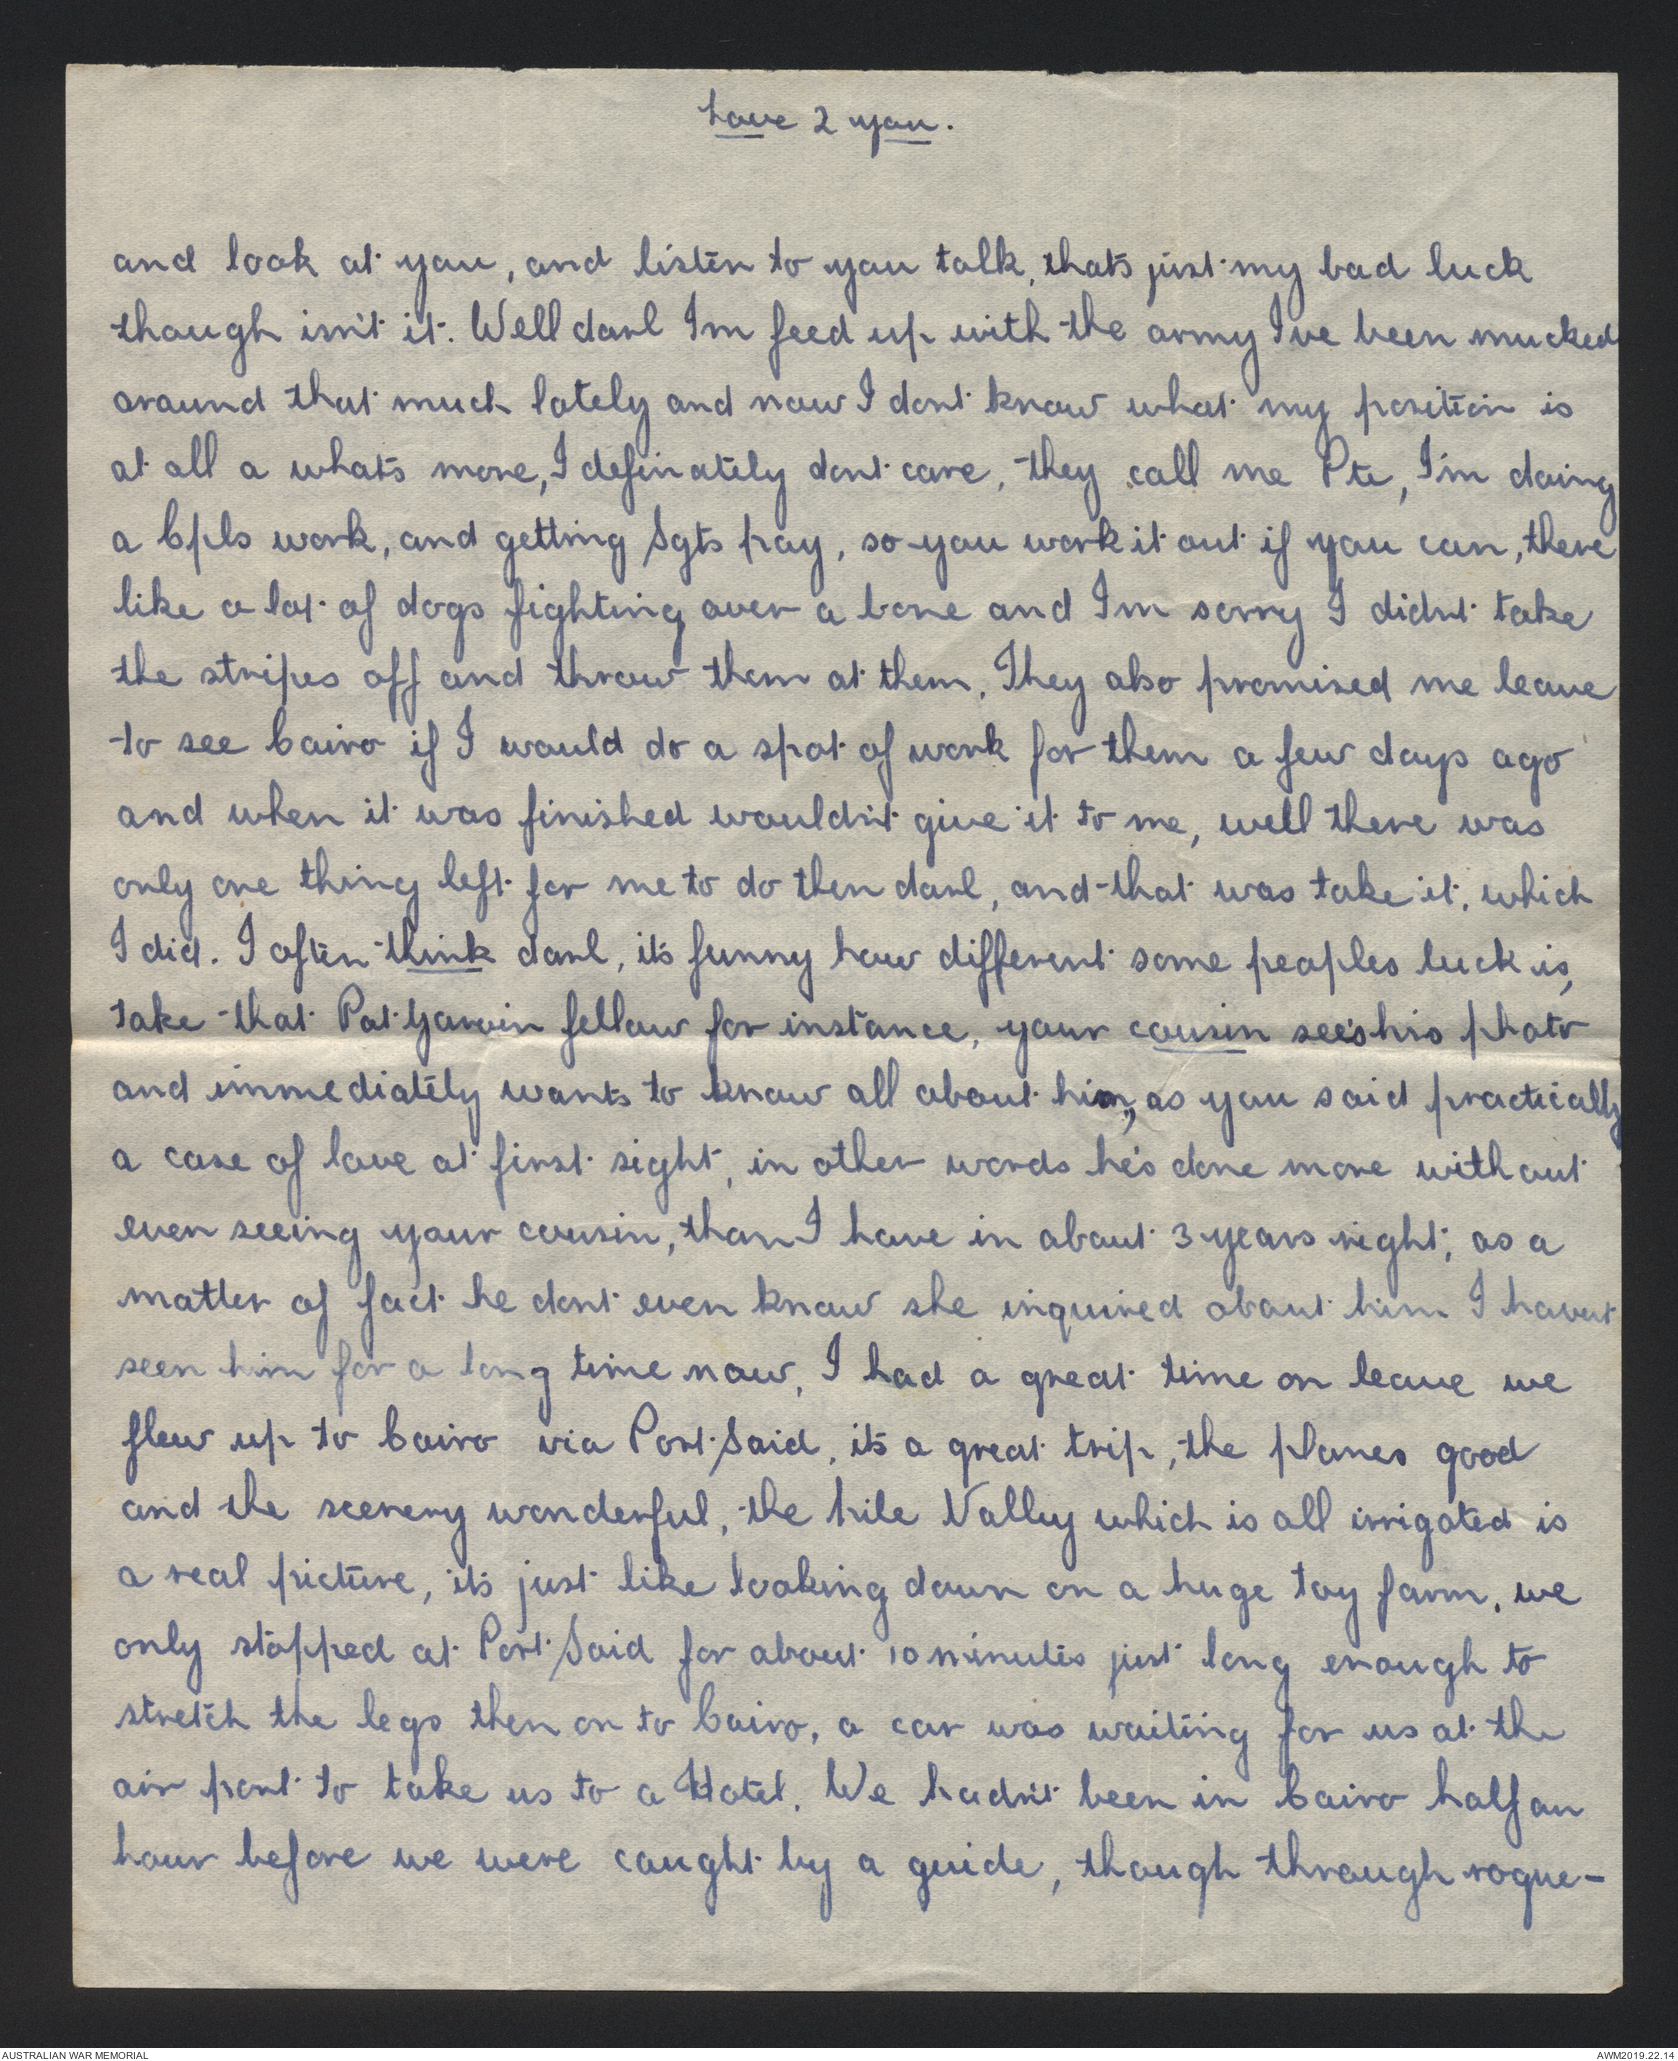 Love 2 you.
and look at you, and listen to you talk, that's just my bad luck
though isn't it. Well darl I'm feed up with the army I've been mucked
around that much lately and now I dont know what my position is
at all a what's more, I definately dont care, they call me Pte, I'm doing
a Cpls work, and getting Sgts pay, so you work it out if you can, there
like a lot of dogs fighting over a bone and I'm sorry I didn't take
the stripes off and throw them at them. They also promised me leave
to see Cairo if I would do a spot of work for them a few days ago
and when it was finished wouldn't give it to me, well there was
only one thing left for me to do then darl, and that was take it, which
I did. I often think darl, it's funny how different some peoples luck is,
take that Pat Garvin fellow for instance, your cousin see's his photo
and immediately wants to know all about him, as you said practically
a case of love at first sight, in other words he's done more without
even seeing your cousin, than I have in about 3 years right, as a
matter of fact he dont even know she inquired about him I havent
seen him for a long time now, I had a great time on leave we
flew up to Cairo via Port Said, it's a great trip, the planes good
and the scenery wonderful, the Nile Valley which is all irrigated is
a real picture, it's just like looking down on a huge toy farm, we
only stopped at Port Said for about 10 minutes just long enough to
stretch the legs then on to Cairo, a car was waiting for us at the
air port to take us to a Hotel. We hadn't been in Cairo half an
hour before we were caught by a guide, though through rogue-
AUSTRALIAN WAR MEMORIAL
AWM2019.22.14